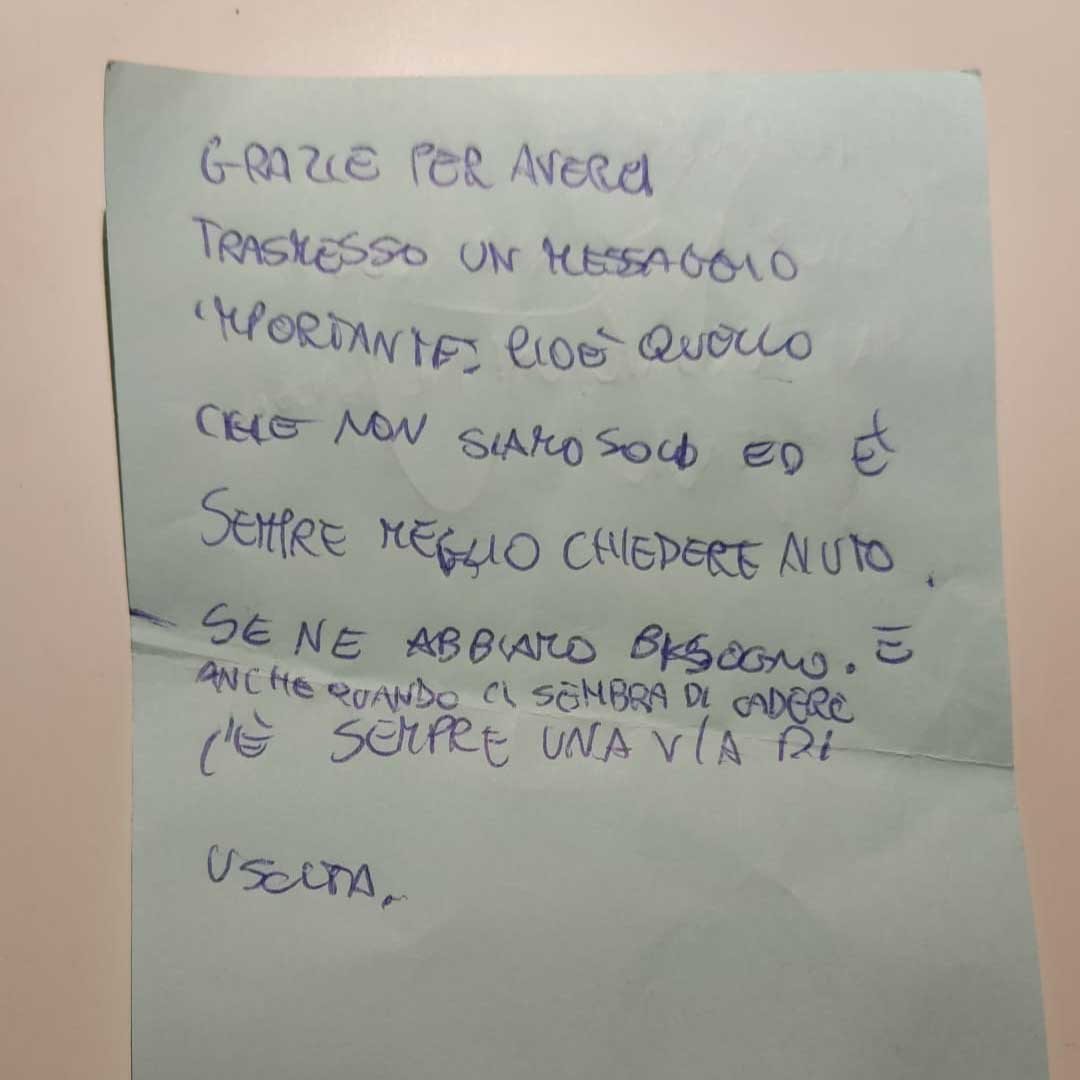 GRAZIE PER AVERCI
TRASMESSO UN MESSAGGIO
IMPORTANTE, CIOÈ QUELLO
CHE NON SIAMO SOLI ED È
SEMPRE MEGLIO CHIEDERE AIUTO,
SE NE ABBIAMO BISOGNO. E
ANCHE QUANDO CI SEMBRA DI CADERE
C'È SEMPRE UNA VIA DI
USCITA.